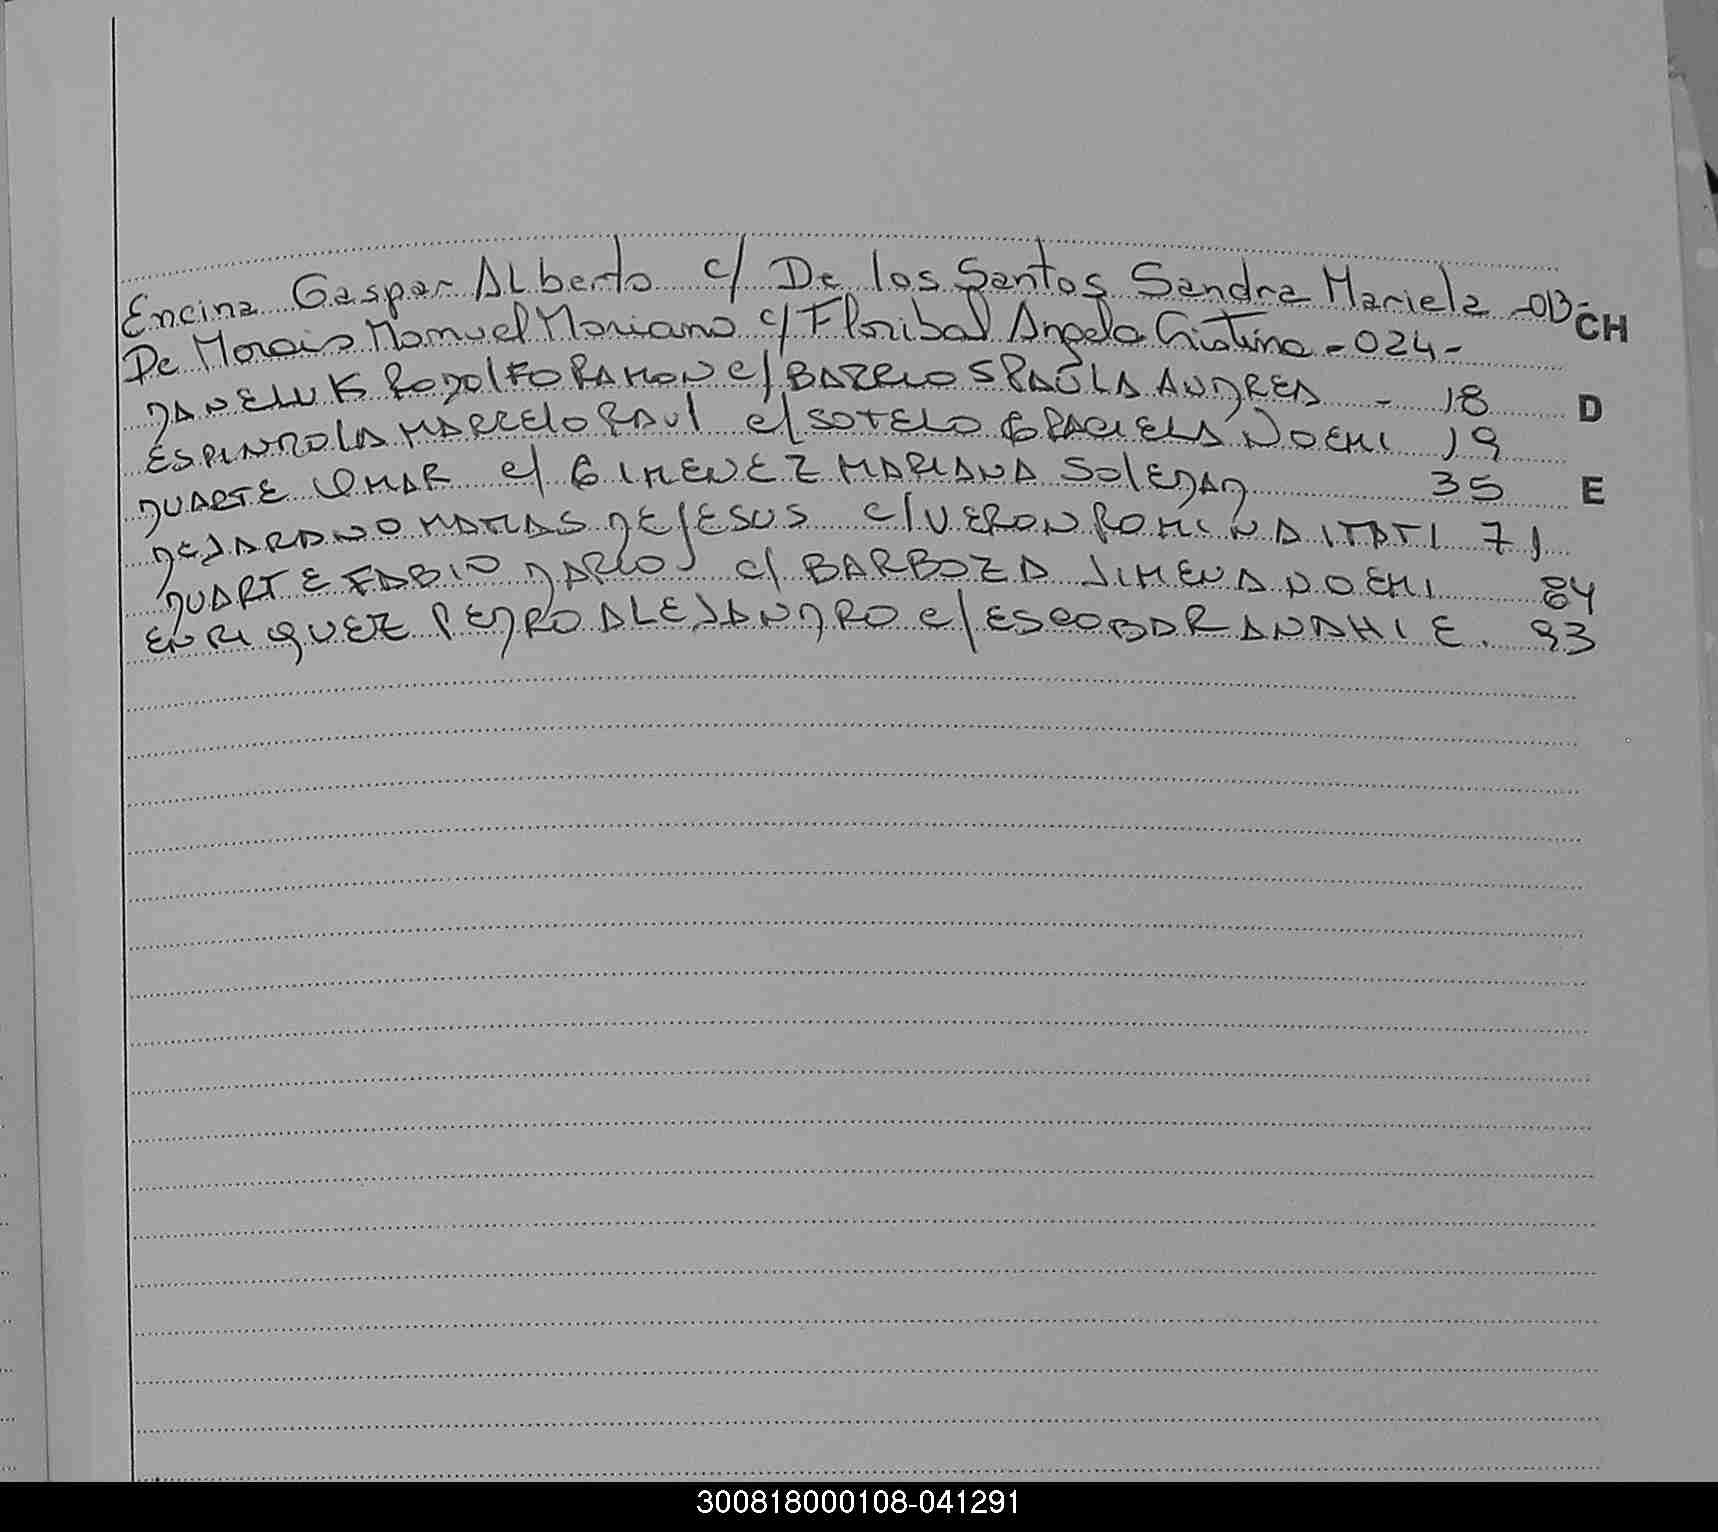 Encina Gaspar Alberto c/ De los Santos Sandra Mariela -013-
CH
De Morais Manuel Mariano c/ Floribal Angela Cristina - 024 -
DANELUK RODOLFO RAMON c/ BARRIOS PAULA ANDREA - 18
D
ESPINDOLA MARCELO RAUL c/ SOTELO GRACIELA NOEMI 19
DUARTE OMAR c/ GIMENEZ MARIANA SOLEDAD 35
E
DEJARANO MATIAS DE JESUS c/ VERON ROMINA ITATI 71
DUARTE FABIO DARIO c/ BARBOZA JIMENA NOEMI 84
ENRIQUEZ PEDRO ALEJANDRO c/ ESCOBAR ANAHI E. 93
300818000108-041291